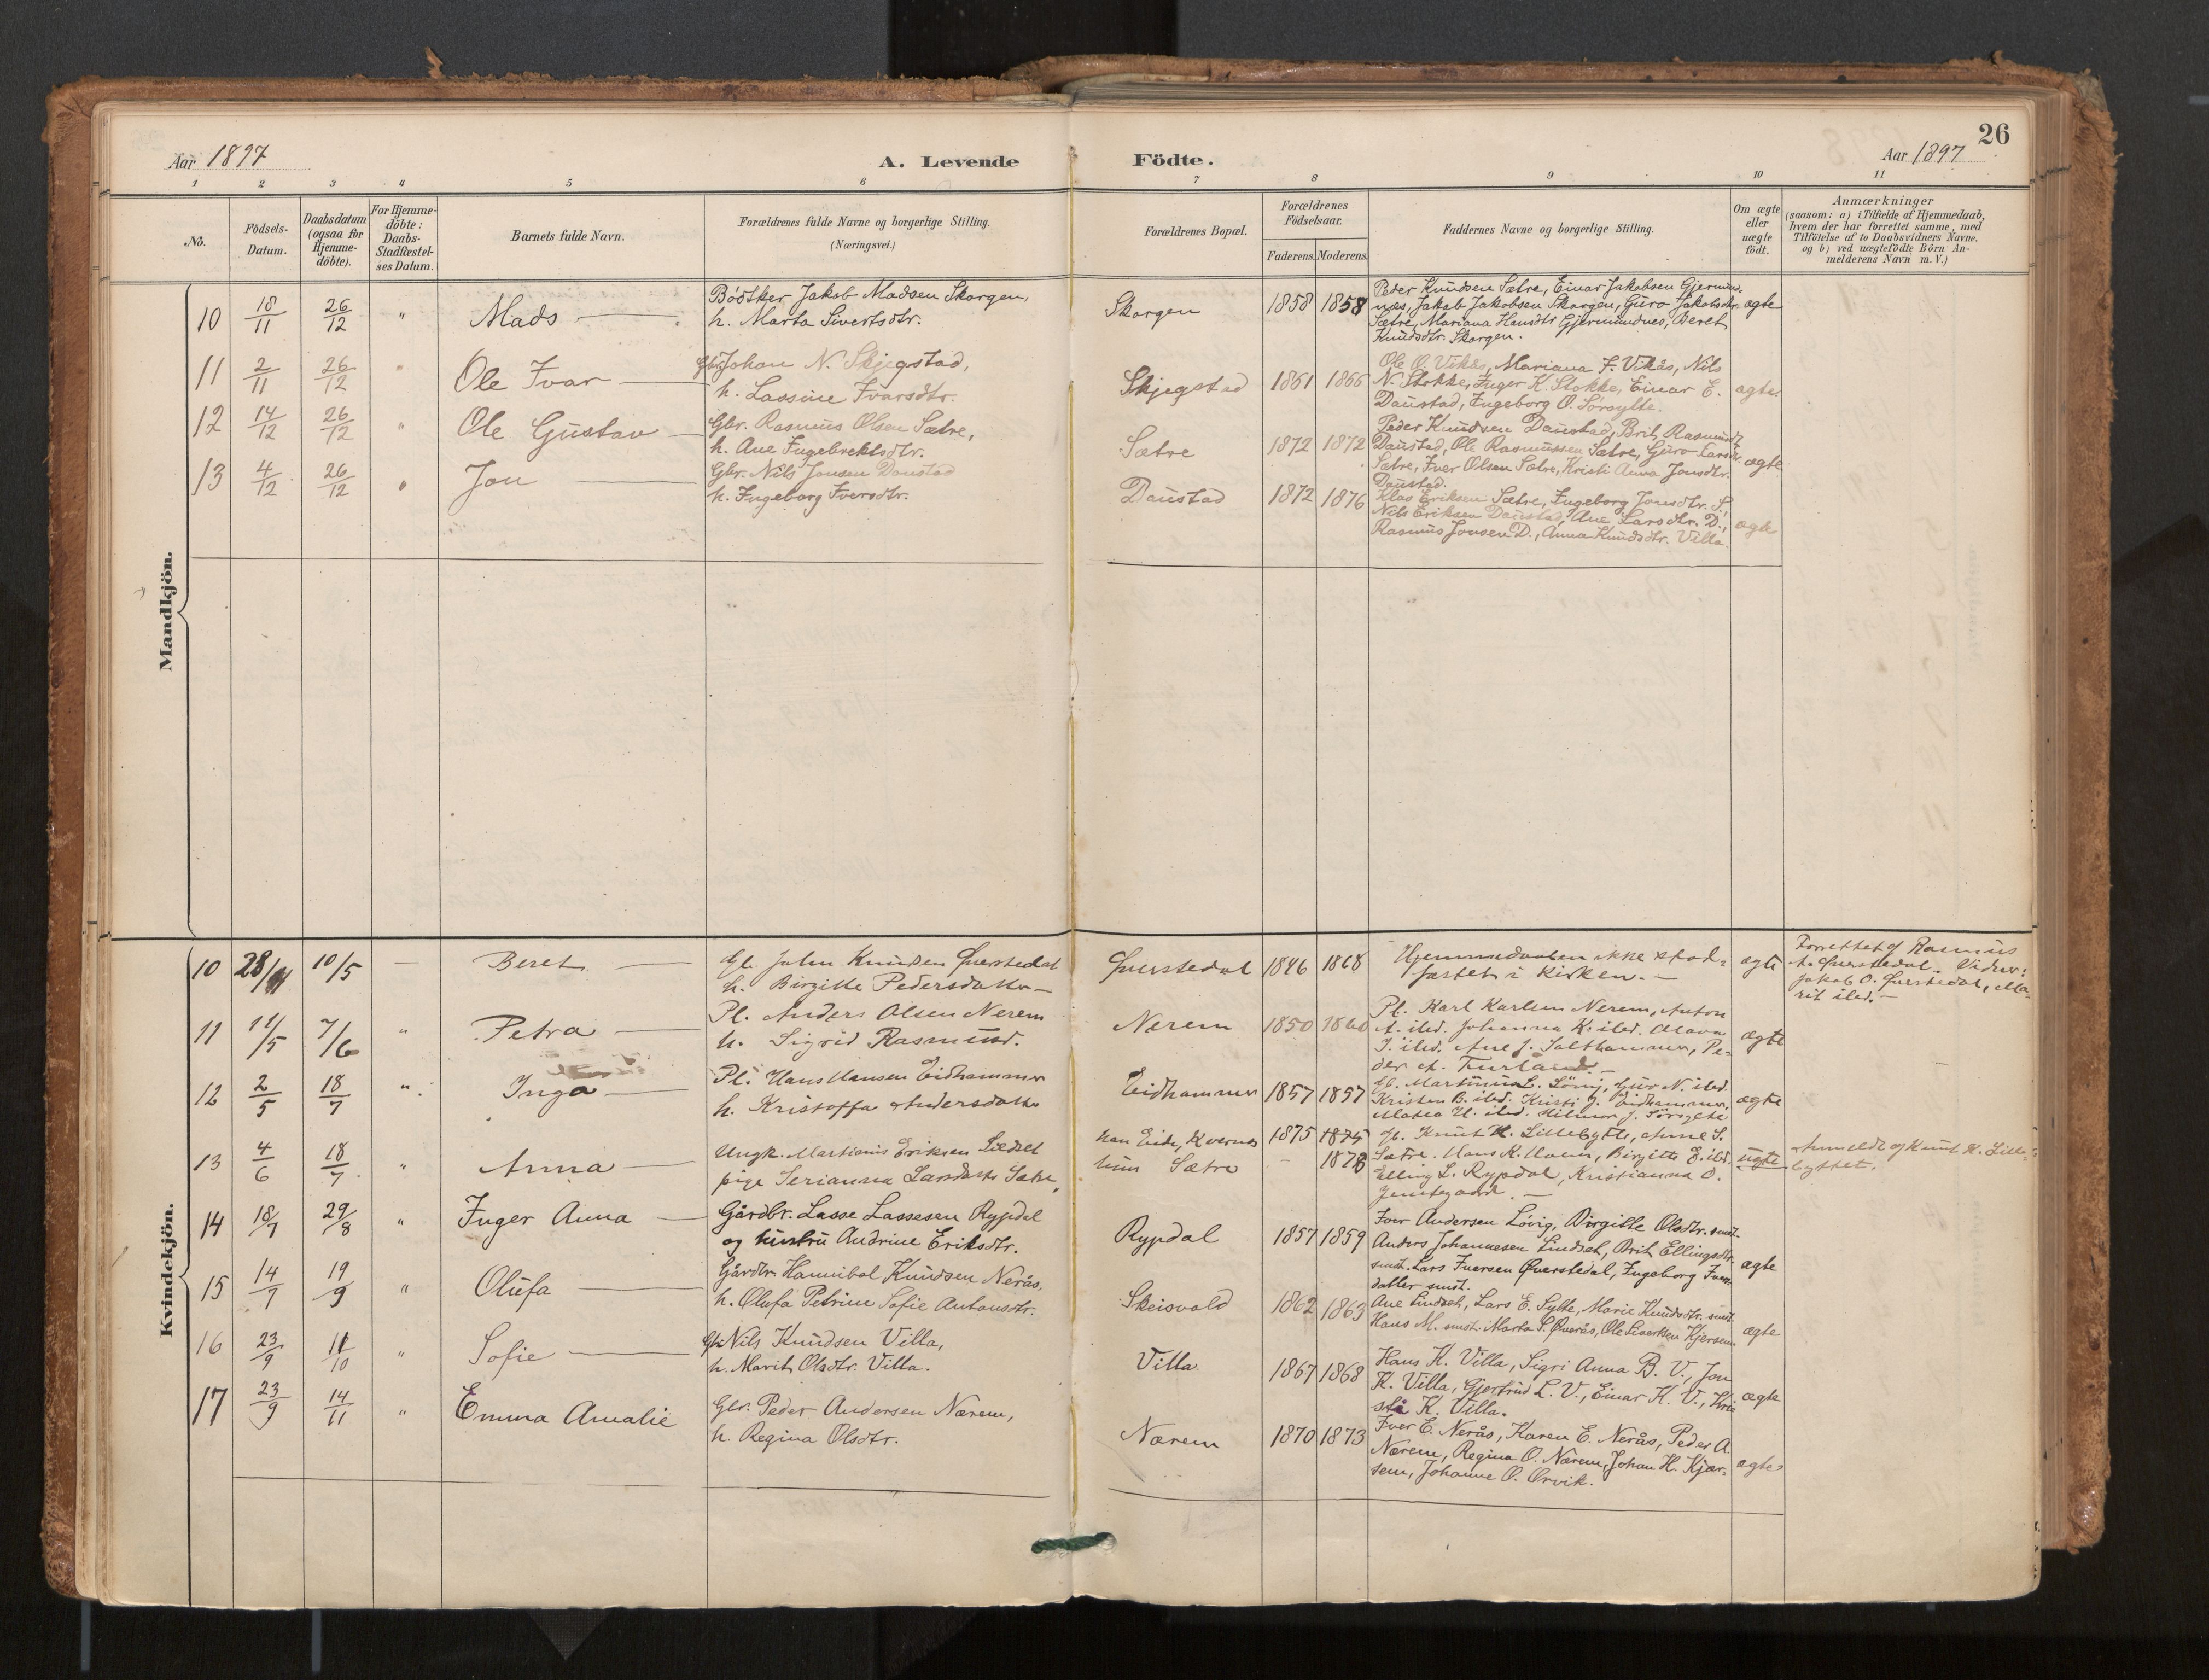 26
Aar 1897
A. Levende Födte.
Aar 1897
1 2 3 4 5 6 7 8 9 10 11
No.
Födsels-Datum.
Daabsdatum (ogsaa for Hjemme-döbte).
For Hjemme-döbte: Daabs-Stadfæstel-ses Datum.
Barnets fulde Navn.
Forældrenes fulde Navne og borgerlige Stilling. (Næringsvei.)
Forældrenes Bopæl.
Forældrenes Födselsaar.
Faderens. Moderens.
Faddernes Navne og borgerlige Stilling.
Om ægte eller uægte födt.
Anmærkninger
(saasom: a) i Tilfælde af Hjemmedaab,
hvem der har forrettet samme, med
Tilföielse af to Daabsvidners Navne.
og b) ved uægtefödte Börn An-
melderens Navn m. V.)
Mandkjön.
10 18/11 26/12 " Mads
Bødtker Jakob Madsen Skorgen,
h. Marta Sivertsdtr.
Skorgen 1858 1858
Peder Knudsen Sætre, Einar Jakobsen Gjermund-
nes, Jakob Jakobsen Skorgen, Guro Jakobsdtr.
Sætre, Mariana Hansdtr Gjermundnes, Beret
Knudsdtr. Skorgen.
ægte
11 2/11 26/12 " Ole Ivar
Gbr. Johan N. Skjegstad,
h. Lassine Ivarsdtr.
Skjegstad 1861 1866
Ole O. Vikås, Mariana F. Vikås, Nils
N. Stokke, Inger K. Stokke, Einar E.
Daustad, Ingeborg O. Sørsylte.
ægte
12 14/12 26/12 " Ole Gustav
Gbr. Rasmus Olsen Sætre,
h. Ane Ingebrektsdtr.
Sætre 1872 1872
Peder Knudsen Daustad, Brit Rasmusdtr
Daustad, Ole Rasmussen Sætre, Guro Larsdtr.
Sætre, Iver Olsen Sætre, Kristi Anna Jonsdtr.
Daustad.
ægte
13 4/12 26/12 " Jon
Gbr. Nils Jonsen Daustad
h. Ingeborg Iversdtr.
Daustad 1872 1876
Klas Eriksen Sætre, Ingeborg Jonsdtr. S.,
Nils Eriksen Daustad, Ane Larsdtr. D.,
Rasmus Jonsen D., Anna Knudsdtr. Villa.
ægte
Kvindekjön.
10 28/4 10/5 — Beret
Gb. John Knudsen Øverstedal
h. Birgitte Pedersdatter
Øverstedal 1846 1868
Hjemmedaaben ikke stad-
fæstet i Kirken.
ægte
Forrettet af Rasmus
A. Øverstedal. Vidner:
Jakob O. Øverstedal, Ma-
rit ibd.
11 11/5 7/6 " Petra
Pl. Anders Olsen Nerem
h. Sigrid Rasmusd.
Nerem 1850 1860
Pl. Karl Karlsen Nerem, Anton
A. ibd. Johanna K. ibd. Olava
J. ibd. Ane J. Salthammer, Pe-
der A. Furland.
ægte
12 2/5 18/7 " Inga
Pl. Hans Hansen Eidhammer
h. Kristoffa Andersdatter
Eidhammer 1857 1857
Gb. Martinus L. Løvig, Guro N. ibd.
Kristen B. ibd. Kristi J. Eidhammer,
Matea H. ibd. Hilmar J. Sørsylte
ægte
13 4/6 18/7 " Anna
Ungk. Martinus Eriksen Lidset
pige Serianna Larsdatter Sætre,
han Eide, Kvernes 1875 1875
hun Sætre - 1878
Gb. Knut K. Lillebygte, Anne S.
Sætre. Hans K. Moen, Birgitte E. ibd.
Elling L. Rypdal, Kristianna O.
Jentegaard.
uægte
Anmeldt af Knut K. Lille-
bygtet.
14 18/7 29/8 " Inger Anna
Gårdbr. Lasse Lassesen Rypdal
og hustru Andrine Eriksdtr.
Rypdal 1857 1859
Iver Andersen Lövig, Birgitte Olsdtr. smst.
Anders Johannesen Lindset, Brit Ellingsdtr.
smst. Lars Iversen Øverstedal, Ingeborg Ivers-
datter smst.
ægte
15 14/7 19/9 " Olufa
Gårdbr. Hannibal Knudsen Nerås,
h. Olufa Petrine Sofie Antonsdtr.
Skeisvold 1862 1863
Ane Lindset, Lars E. Sylte, Marie Knudsdtr. smst.
Hans M. smst. Marta S. Øverås, Ole Sivertsen Kjersem.
ægte
16 23/9 11/10 " Sofie
Gbr. Nils Knudsen Villa,
h. Marit Olsdtr. Villa.
Villa 1867 1868
Hans K. Villa, Sigri Anna B. V., Jon
K. Villa, Gjertrud L. V., Einar K. V., Kri-
sti K. Villa.
ægte
17 23/9 14/11 " Emma Amalie
Gbr. Peder Andersen Nærem,
h. Regina Olsdtr.
Nærem 1870 1873
Iver E. Nerås, Karen E. Nerås, Peder A.
Nærem, Regina O. Nærem, Johan H. Kjær-
sem, Johanne O. Orvik.
ægte